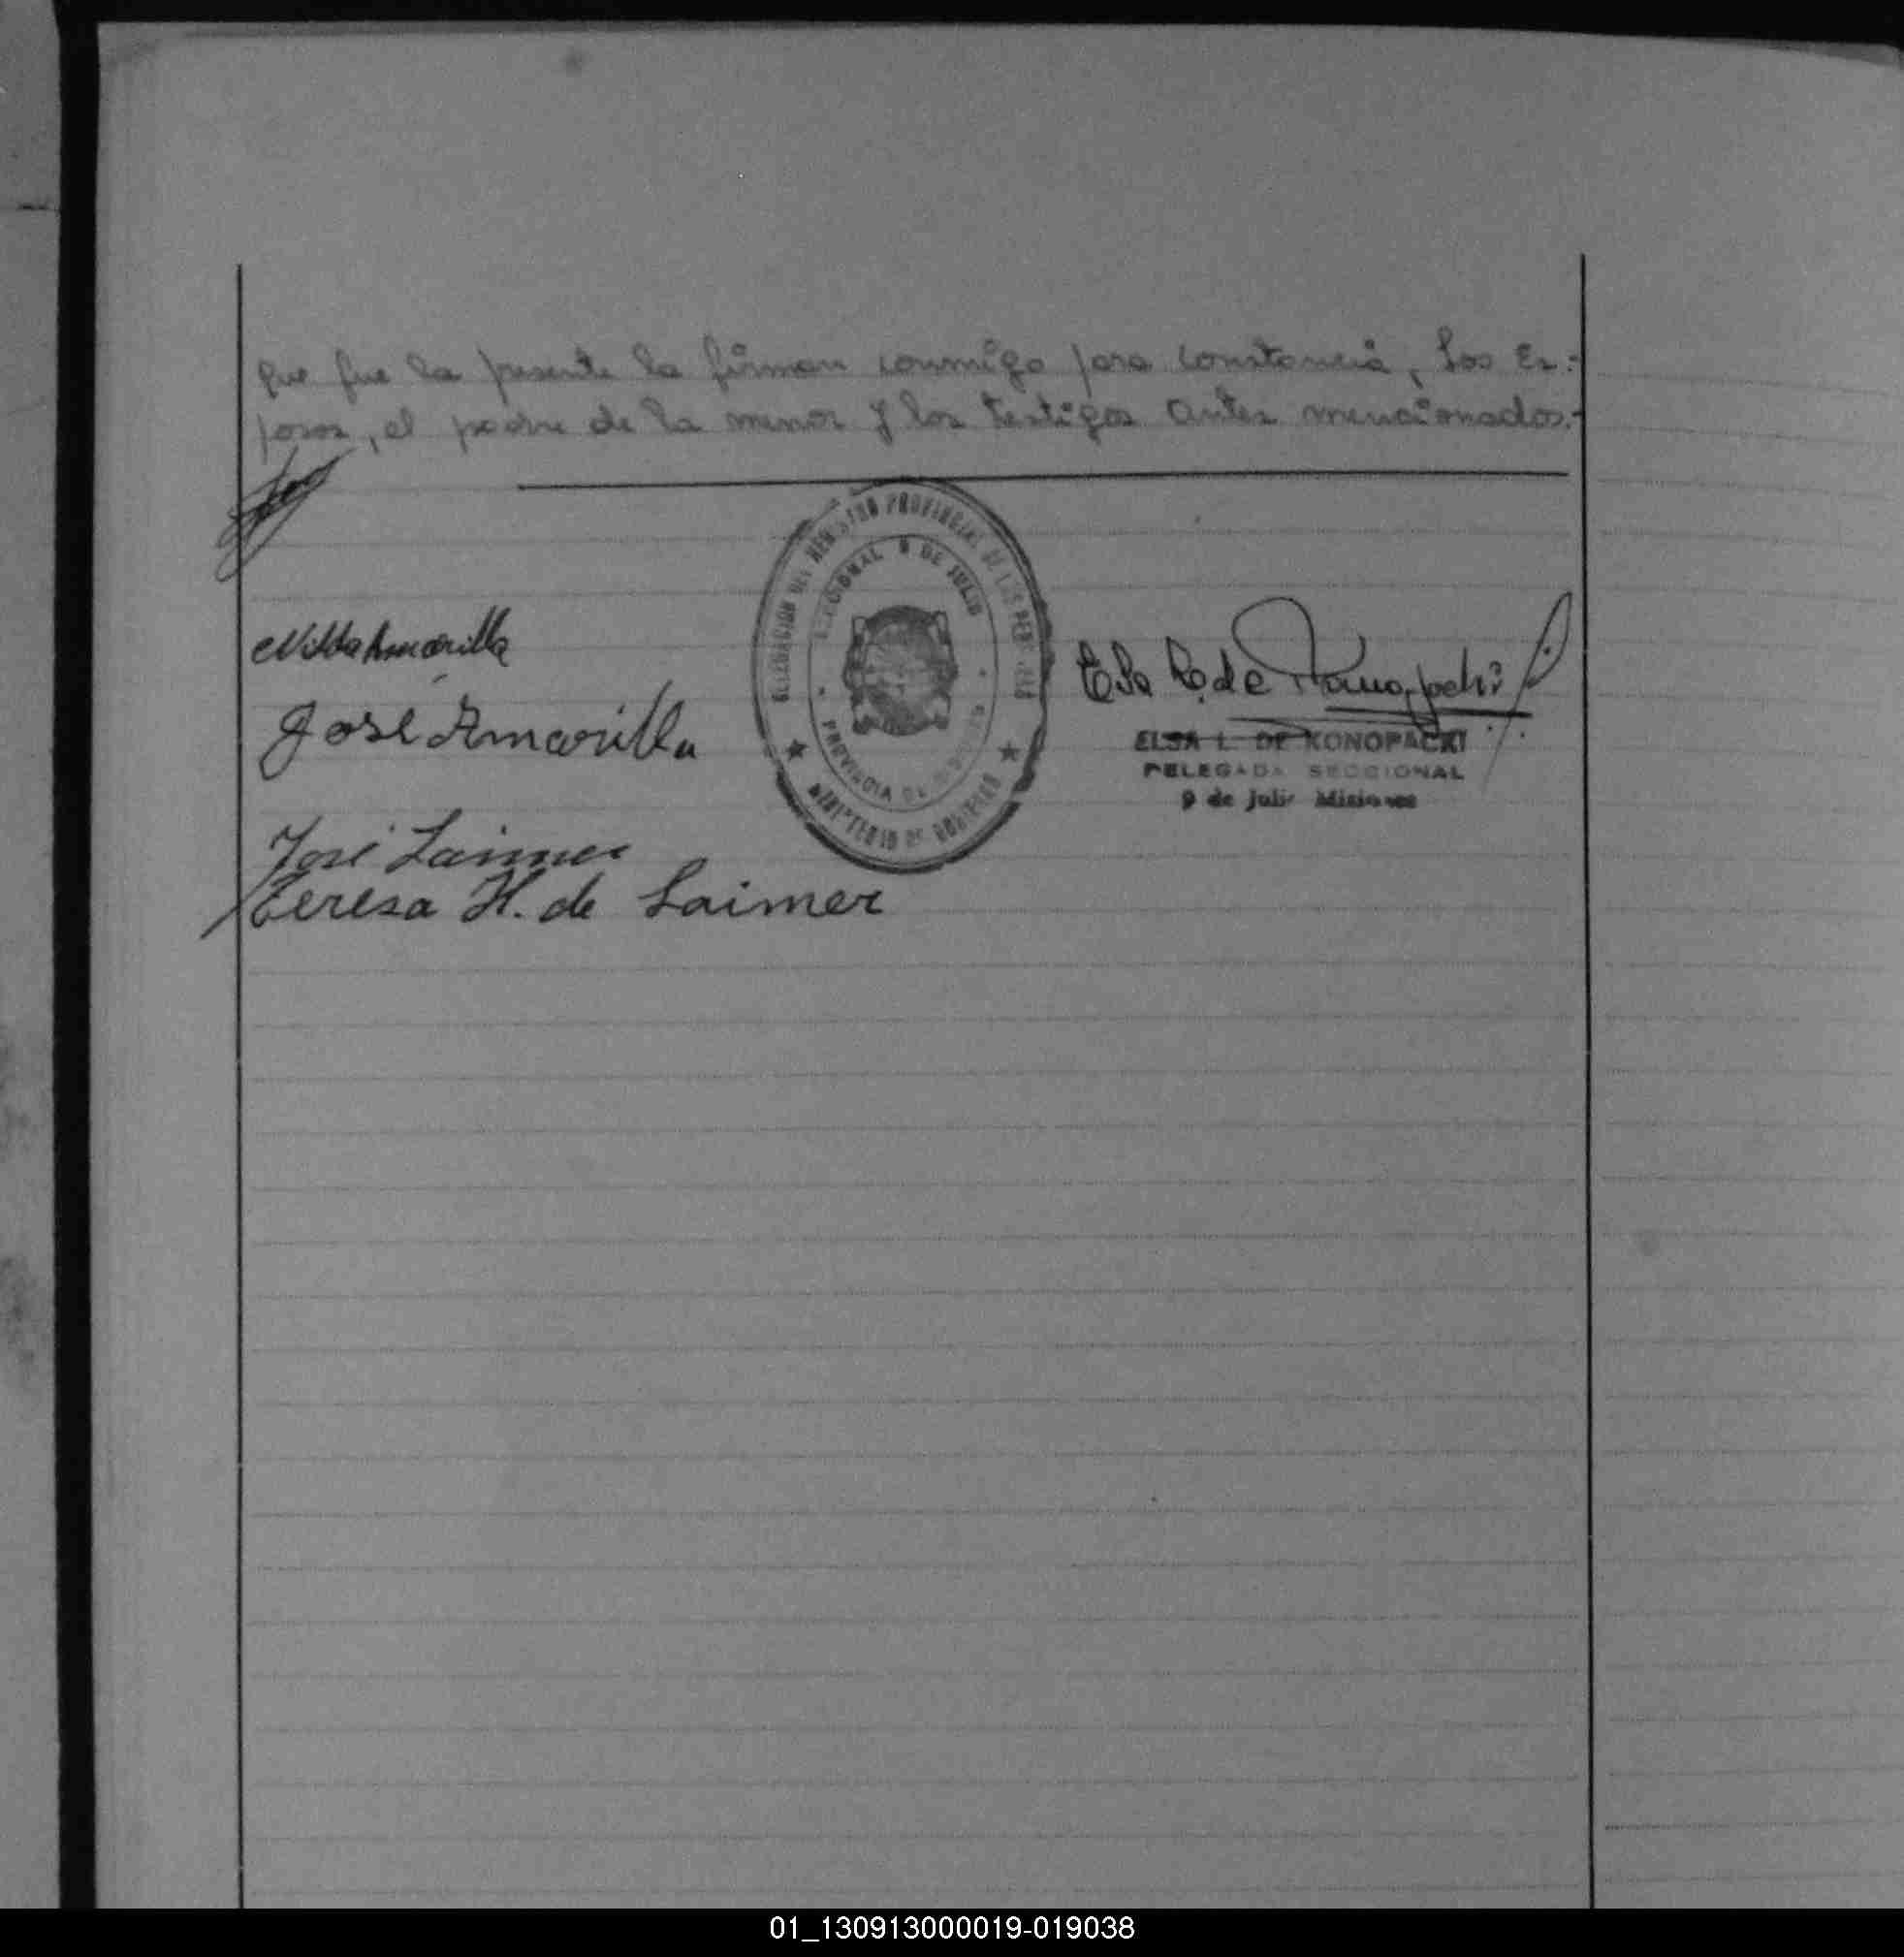 que fue la presente la firman conmigo para constancia, Los Es-
posos, el padre de la menor y los testigos antes mencionados.-
DELEGACION DEL REGISTRO PROVINCIAL DE LAS PERSONAS
SECCIONAL 9 DE JULIO
PROVINCIA DE MISIONES
MINISTERIO DE GOBIERNO
Nilda Amarilla
José Amarilla
Elsa L. de Konopacki
ELSA L. DE KONOPACKI
DELEGADA SECCIONAL
9 de Julio Misiones
José Laimer
Teresa H. de Laimer
01_130913000019-019038